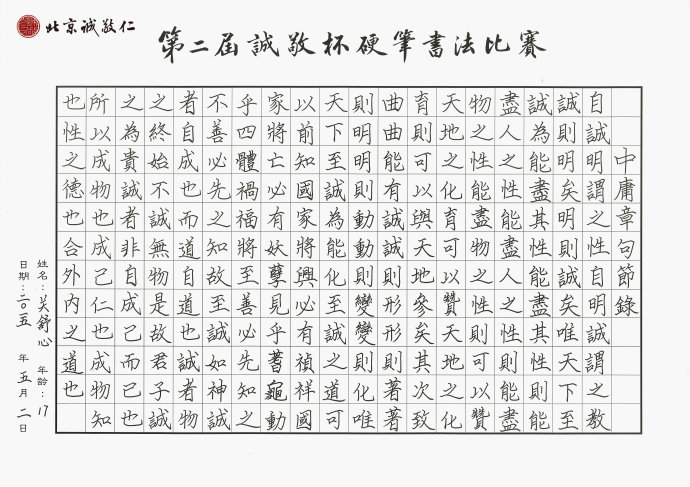 北京誠敬仁
第二屆誠敬杯硬筆書法比賽
中庸章句節錄
自誠明謂之性自明誠謂之教
誠則明矣明則誠矣唯天下至
誠為能盡其性能盡其性則能
盡人之性能盡人之性則能盡
物之性能盡物之性則可以贊
天地之化育可以贊天地之化
育則可以與天地參矣其次致
曲曲能有誠誠則形形則著著
則明明則動動則變變則化唯
天下至誠為能化至誠之道可
以前知國家將興必有禎祥國
家將亡必有妖孽見乎蓍龜動
乎四體禍福將至善必先知之
不善必先之知故至誠如神誠
者自成也而道自道也誠者物
之終始不誠無物是故君子誠
之為貴誠者非自成己而已也
所以成物也成己仁也成物知
也性之德也合外內之道也
姓名:吴舒心 年齡:17
日期:二〇一五年五月二日